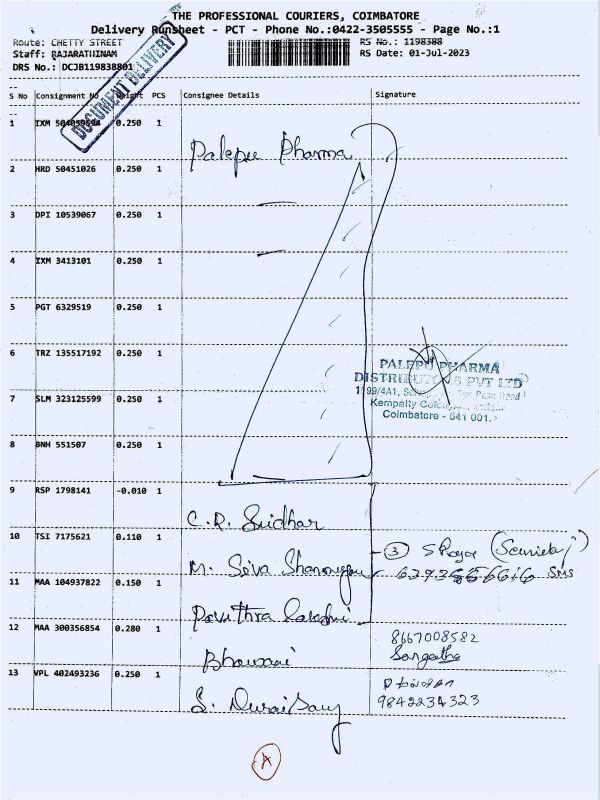 THE PROFESSIONAL COURIERS, COIMBATORE
Delivery Runsheet - PCT - Phone No.:0422-3505555 - Page No.:1
Route: CHETTY STREET
RS No.: 1198388
Staff: RAJARATHINAM
RS Date: 01-Jul-2023
DRS No.: DCJB119838801
DOCUMENT DELIVERY
S No Consignment No Weight PCS Consignee Details Signature
1 IXM 0.250 1
Palepu Pharma
2 HRD 50451026 0.250 1
3 DPI 10539067 0.250 1
4 IXM 3413101 0.250 1
5 PGT 6329519 0.250 1
6 TRZ 135517192 0.250 1
PALEPU PHARMA
DISTRIBUTORS PVT LTD
7 SLM 323125599 0.250 1
1199/4A1, Road
Kempatty Colony,
Coimbatore - 641 001.
8 BNH 551507 0.250 1
9 RSP 1798141 -0.010 1
C.R. Sridhar
10 TSI 7175621 0.110 1
3
M. Siva Shanmugam
SMS
11 MAA 104937822 0.150 1
Pavithra
12 MAA 300356854 0.280 1
8667008582
Bhawani
Sangeetha
13 VPL 402493236 0.250 1
S. Duraisamy
9842234323
A